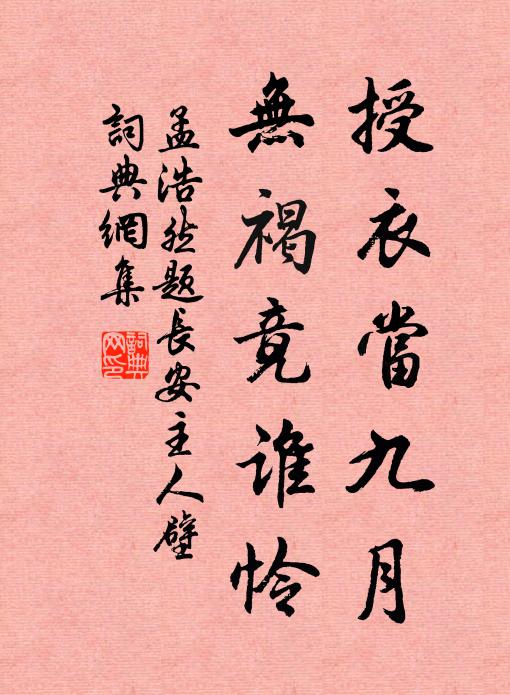 授衣當九月
無褐竟誰怜
孟浩然题長安主人壁
詞典網集
詞典網印